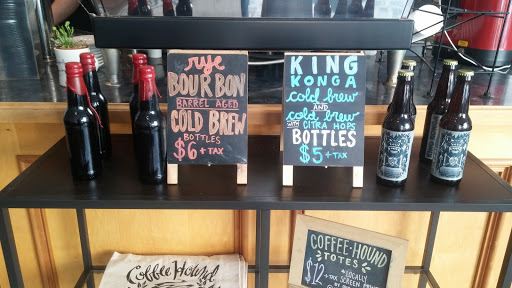 rye
BOURBON
BARREL AGED
COLD BREW
BOTTLES
$6 + TAX
KING
KONGA
cold brew
AND
cold brew
WITH CITRA HOPS
BOTTLES
$5 + TAX
Coffee Hound
COFFEE-HOUND
TOTES
$12
+ TAX
LOCALLY
SCREEN